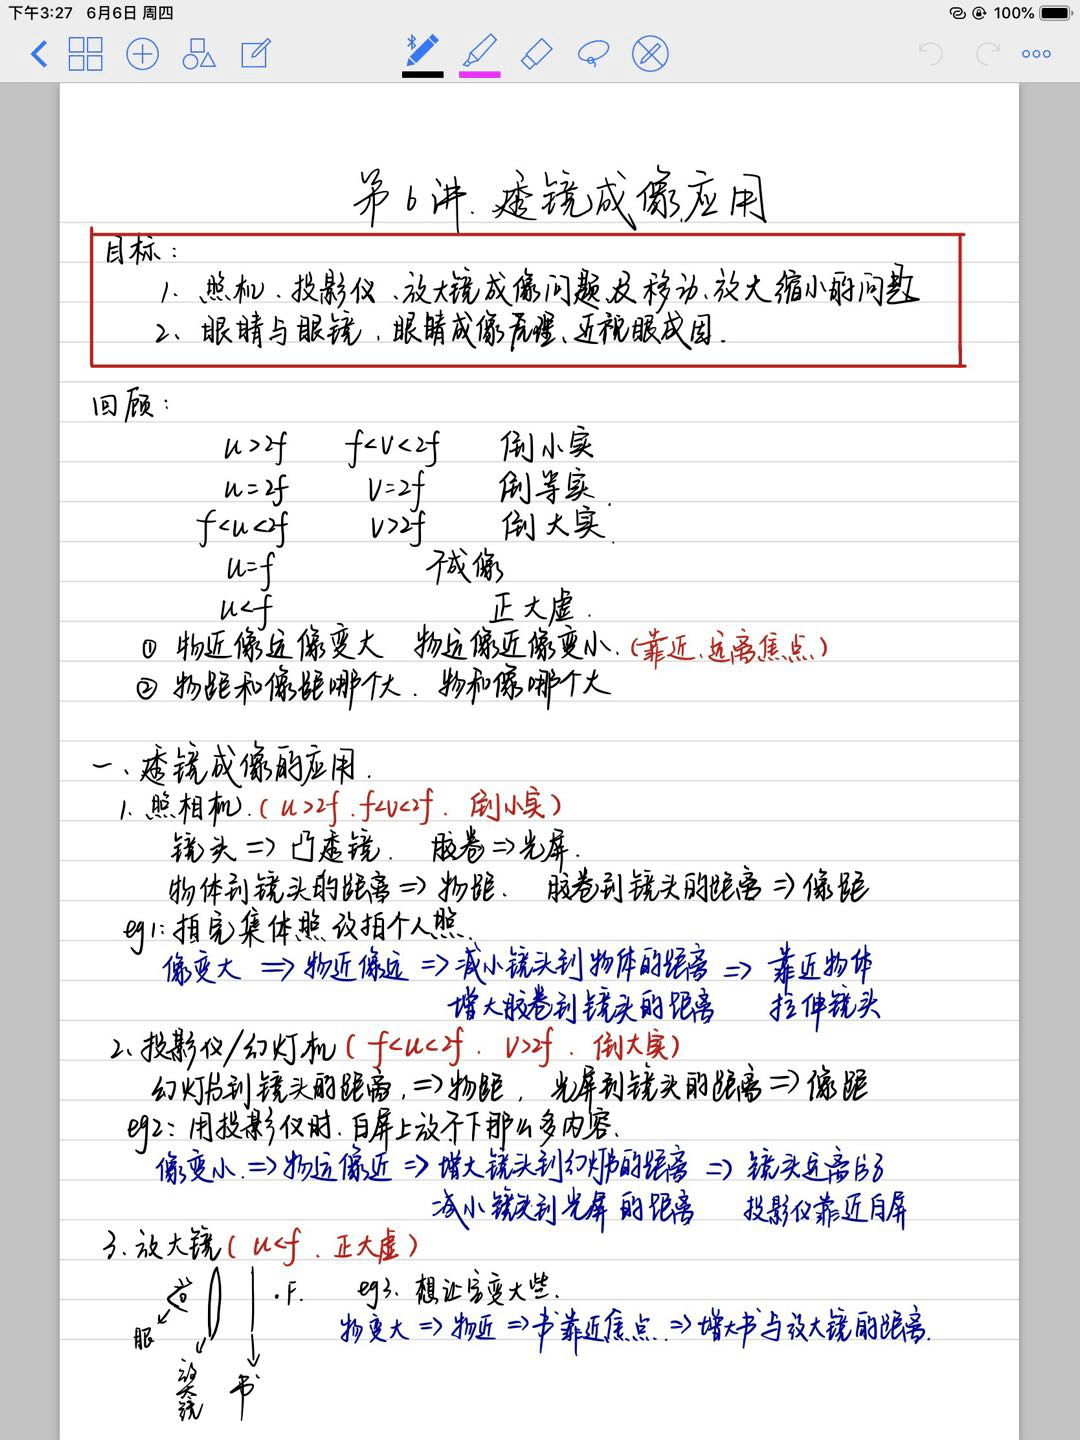 下午3:27 6月6日 周四
100%
第6讲、透镜成像应用
目标：
1、照机、投影仪、放大镜成像问题及移动、放大缩小的问题
2、眼睛与眼镜、眼睛成像原理、近视眼成因.
回顾：
u>2f f<v<2f 倒小实
u=2f v=2f 倒等实.
f<u<2f v>2f 倒大实.
u=f 不成像
u<f 正大虚.
① 物近像远像变大 物远像近像变小.(靠近、远离焦点)
② 物距和像距哪个大. 物和像哪个大
一、透镜成像的应用.
1. 照相机.(u>2f.f<v<2f.倒小实)
镜头=>凸透镜. 胶卷=>光屏.
物体到镜头的距离=>物距. 胶卷到镜头的距离=>像距
eg1:拍完集体照改拍个人照.
像变大=>物近像远=>减小镜头到物体的距离=>靠近物体
增大胶卷到镜头的距离 拉伸镜头
2、投影仪/幻灯机(f<u<2f.v>2f.倒大实)
幻灯片到镜头的距离,=>物距, 光屏到镜头的距离=>像距
eg2:用投影仪时.白屏上放不下那么多内容.
像变小.=>物远像近=>增大镜头到幻灯片的距离=>镜头远离
减小镜头到光屏的距离 投影仪靠近白屏
3、放大镜(u<f.正大虚)
·F. eg3.想让字变大些.
眼 物变大=>物近=>书靠近焦点.=>增大书与放大镜的距离.
放大镜 书